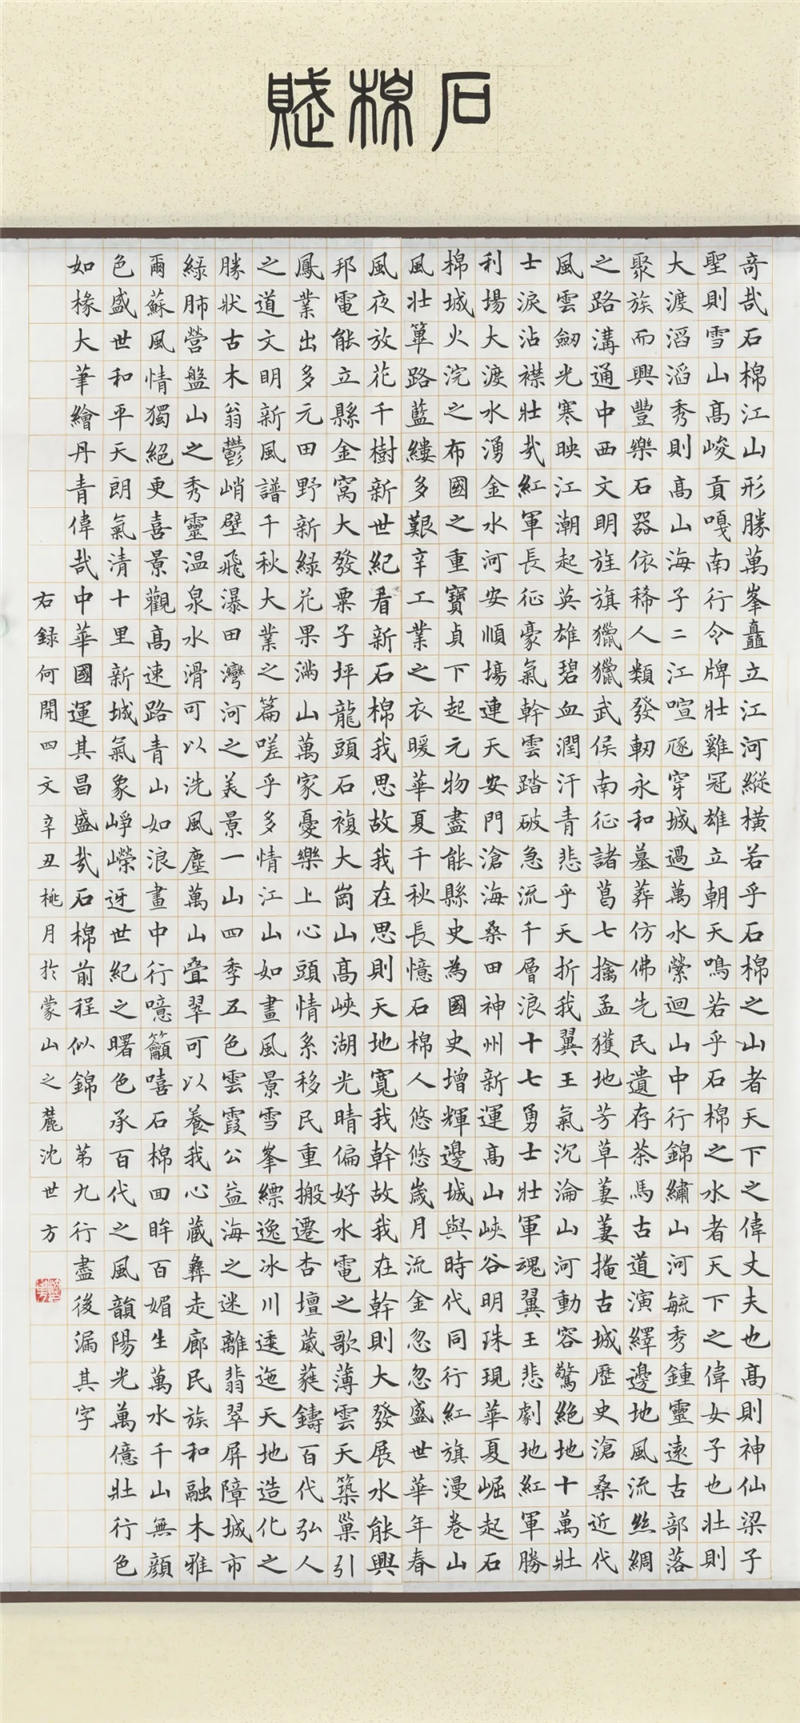 石棉賦
奇哉石棉江山形勝萬峯矗立江河縱橫若乎石棉之山者天下之偉丈夫也高則神仙梁子
聖則雪山高峻貢嘎南行令牌壯雞冠雄立朝天鳴若乎石棉之水者天下之偉女子也壯則
大渡滔滔秀則高山海子二江喧豗穿城過萬水縈迴山中行錦繡山河毓秀鍾靈遠古部落
聚族而興豐樂石器依稀人類發軔永和墓葬仿佛先民遺存茶馬古道演繹邊地風流絲綢
之路溝通中西文明旌旗獵獵武侯南征諸葛七擒孟獲地芳草萋萋掩古城歷史滄桑近代
風雲劍光寒映江潮起英雄碧血潤汗青悲乎天折我翼王氣沉淪山河動容驚絕地十萬壯
士淚沾襟壯哉紅軍長征豪氣幹雲踏破急流千層浪十七勇士壯軍魂翼王悲劇地紅軍勝
利場大渡水湧金水河安順場連天安門滄海桑田神州新運高山峽谷明珠現華夏崛起石
棉城火浣之布國之重寶貞下起元物盡能縣史為國史增輝邊城與時代同行紅旗漫卷山
風壯篳路藍縷多艱辛工業之衣暖華夏千秋長憶石棉人悠悠歲月流金忽忽盛世華年春
風夜放花千樹新世紀看新石棉我思故我在思則天地寬我幹故我在幹則大發展水能興
邦電能立縣金窩大發栗子坪龍頭石複大崗山高峽湖光晴偏好水電之歌薄雲天築巢引
鳳業出多元田野新綠花果滿山萬家憂樂上心頭情系移民重搬遷杏壇葳蕤鑄百代弘人
之道文明新風譜千秋大業之篇嗟乎多情江山如畫風景雪峯縹逸冰川逶迤天地造化之
勝狀古木翁鬱峭壁飛瀑田灣河之美景一山四季五色雲霞公益海之迷離翡翠屏障城市
綠肺營盤山之秀靈溫泉水滑可以洗風塵萬山疊翠可以養我心藏彝走廊民族和融木雅
爾蘇風情獨絕更喜景觀高速路青山如浪畫中行噫籲嘻石棉回眸百媚生萬水千山無顏
色盛世和平天朗氣清十里新城氣象崢嶸迓世紀之曙色承百代之風韻陽光萬億壯行色
如椽大筆繪丹青偉哉中華國運其昌盛哉石棉前程似錦 苐九行盡後漏其字
右錄何開四文辛丑桃月於蒙山之麓沈世方